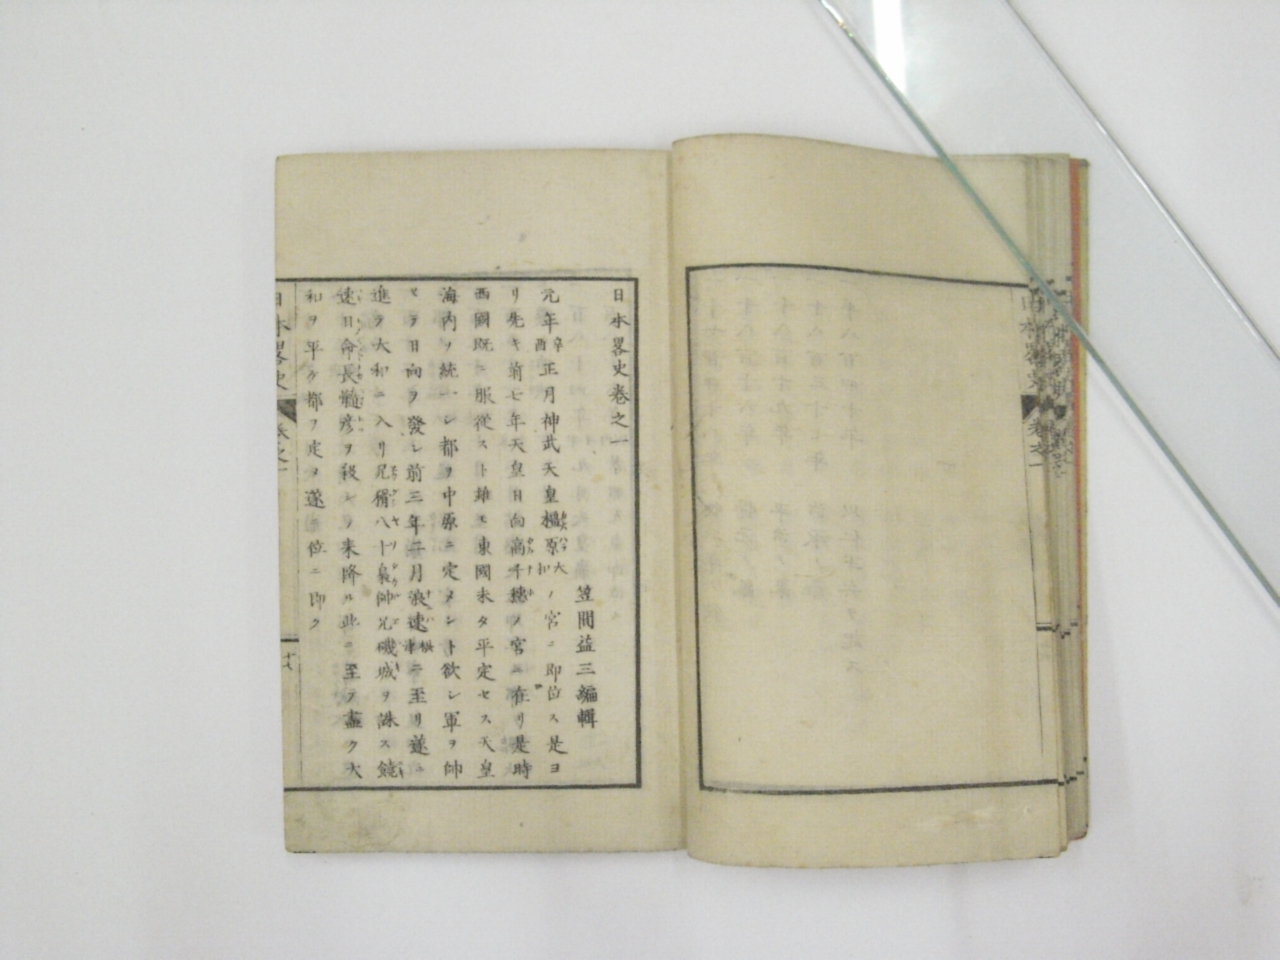 日本畧史卷之一
笠間益三編輯
元年辛酉正月神武天皇橿原大和ノ宮ニ即位ス是ヨ
リ先キ前七年天皇日向高千穗ノ宮ニ在リ是時
西國既ニ服從スト雖モ東國未タ平定セス天皇
海内ヲ統一シ都ヲ中原ニ定メント欲シ軍ヲ帥
ヒヲ日向ヲ發シ前三年二月浪速攝津ニ至リ遂ニ
進ヲ大和ニ入リ兄猾八十梟帥兄磯城ヲ誅ス饒
速日命長髓彦ヲ殺シヲ来降ル此ニ至ヲ盡ク大
和ヲ平ケ都ヲ定メ遂ニ位ニ即ク
日本畧史
卷之一
日本畧史
卷之一